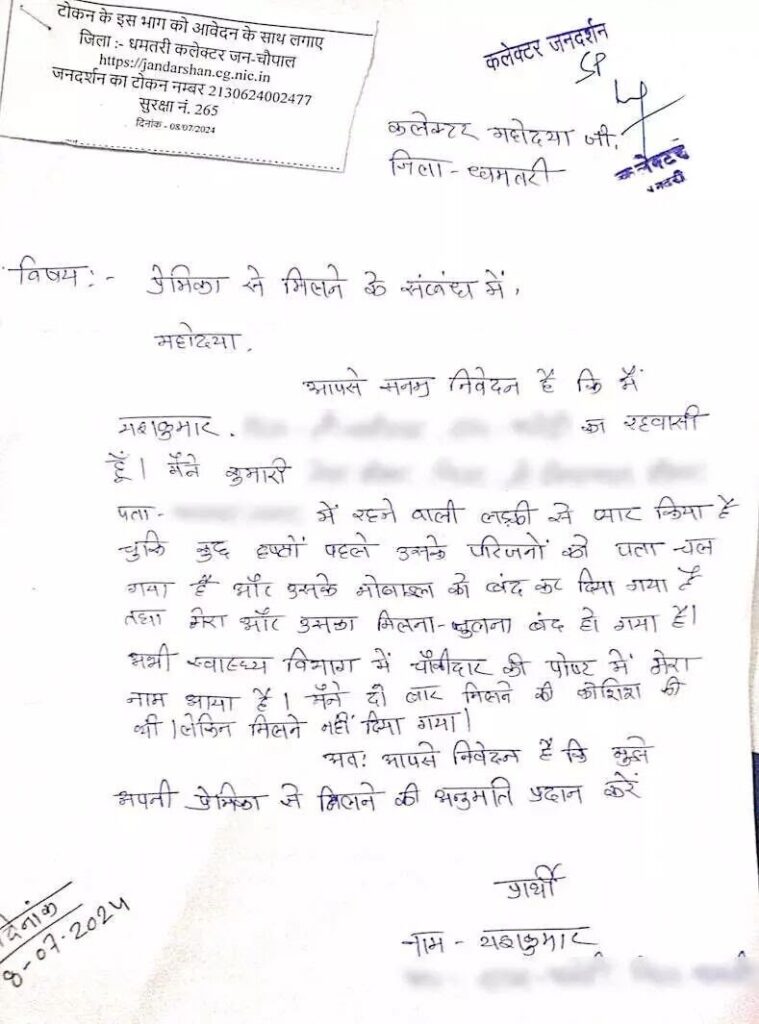 टोकन के इस भाग को आवेदन के साथ लगाए
जिला :- धमतरी कलेक्टर जन-चौपाल
https://jandarshan.cg.nic.in
जनदर्शन का टोकन नम्बर 2130624002477
सुरक्षा नं. 265
दिनांक - 08/07/2024
कलेक्टर जनदर्शन
SP
कलेक्टर महोदया जी,
जिला - धमतरी
कलेक्टर
धमतरी
विषय :- प्रेमिका से मिलने के संबंध में,
महोदया,
आपसे सनम्र निवेदन है कि मैं
यशकुमार, का रहवासी
हूँ। मैंने कुमारी
पता- में रहने वाली लड़की से प्यार किया है
चुकि कुछ हफ्तों पहले उसके परिजनों को पता चल
गया है और उसके मोबाइल को बंद कर दिया गया है
तथा मेरा और उसका मिलना-जुलना बंद हो गया है।
अभी स्वास्थ्य विभाग में चौकीदार की पोस्ट में मेरा
नाम आया है। मैंने दो बार मिलने की कोशिश की
थी। लेकिन मिलने नहीं दिया गया।
अतः आपसे निवेदन है कि मुझे
अपनी प्रेमिका से मिलने की अनुमति प्रदान करें
प्रार्थी
नाम - यशकुमार
दिनांक
8-07-2024